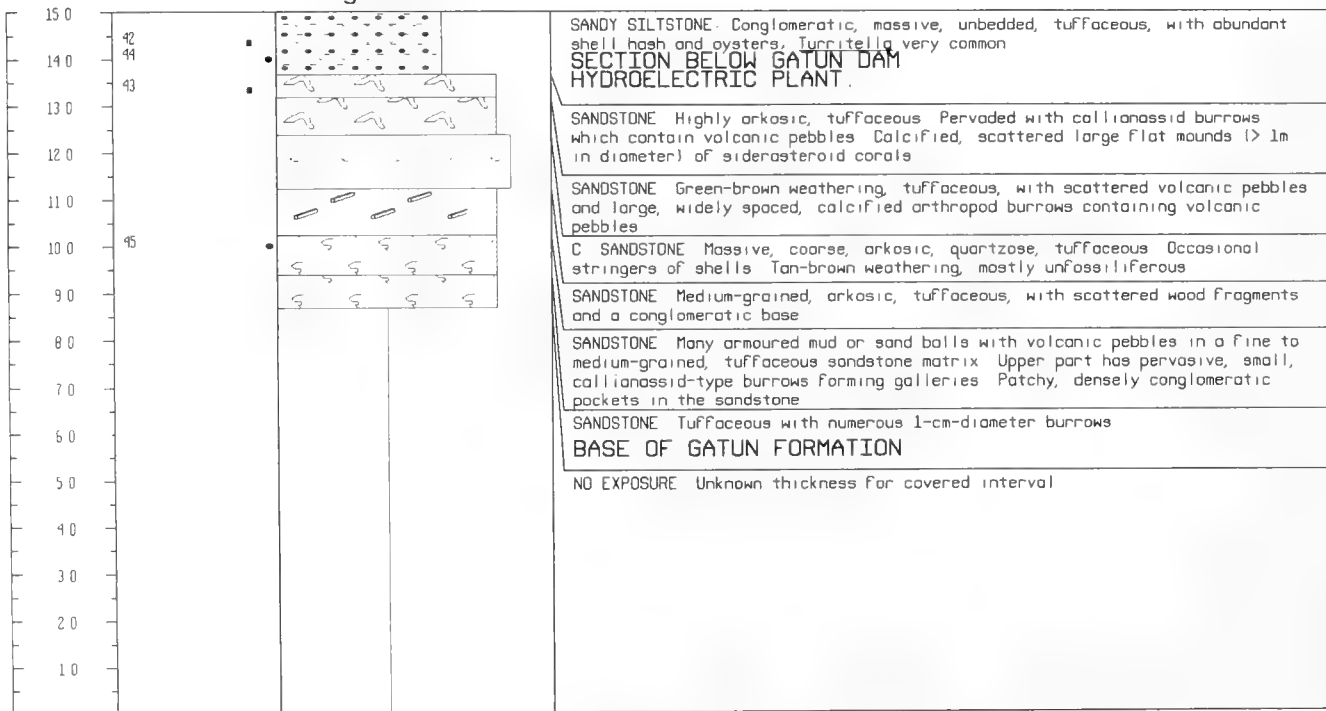 15 0
14 0
13 0
12 0
11 0
10 0
9 0
8 0
7 0
6 0
5 0
4 0
3 0
2 0
1 0
42
44
43
45
SANDY SILTSTONE. Conglomeratic, massive, unbedded, tuffaceous, with abundant
shell hash and oysters, Turritella very common
SECTION BELOW GATUN DAM
HYDROELECTRIC PLANT.
SANDSTONE Highly arkosic, tuffaceous Pervaded with callianassid burrows
which contain volcanic pebbles Calcified, scattered large flat mounds (> 1m
in diameter) of siderasteroid corals
SANDSTONE Green-brown weathering, tuffaceous, with scattered volcanic pebbles
and large, widely spaced, calcified arthropod burrows containing volcanic
pebbles
C SANDSTONE Massive, coarse, arkosic, quartzose, tuffaceous Occasional
stringers of shells Tan-brown weathering, mostly unfossiliferous
SANDSTONE Medium-grained, arkosic, tuffaceous, with scattered wood fragments
and a conglomeratic base
SANDSTONE Many armoured mud or sand balls with volcanic pebbles in a fine to
medium-grained, tuffaceous sandstone matrix Upper part has pervasive, small,
callianassid-type burrows forming galleries Patchy, densely conglomeratic
pockets in the sandstone
SANDSTONE Tuffaceous with numerous 1-cm-diameter burrows
BASE OF GATUN FORMATION
NO EXPOSURE Unknown thickness for covered interval